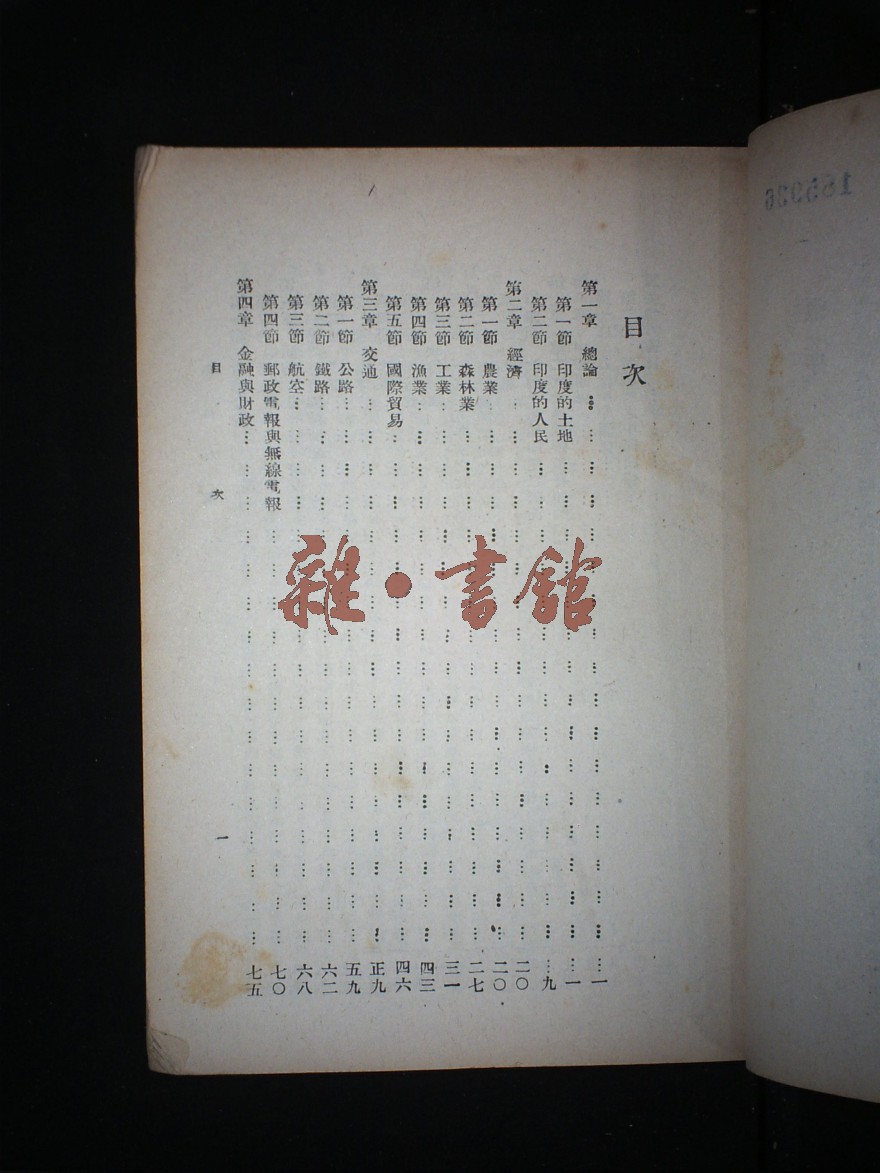 目次
第一章 總論 …… 一
第一節 印度的土地 …… 一
第二節 印度的人民 …… 九
第二章 經濟 …… 二〇
第一節 農業 …… 二〇
第二節 森林業 …… 二七
第三節 工業 …… 三一
第四節 漁業 …… 四三
第五節 國際貿易 …… 四六
第三章 交通 …… 正九
第一節 公路 …… 五九
第二節 鐵路 …… 六二
第三節 航空 …… 六八
第四節 郵政電報與無線電報 …… 七〇
第四章 金融與財政 …… 七五
目次 一
雜·書館
165936